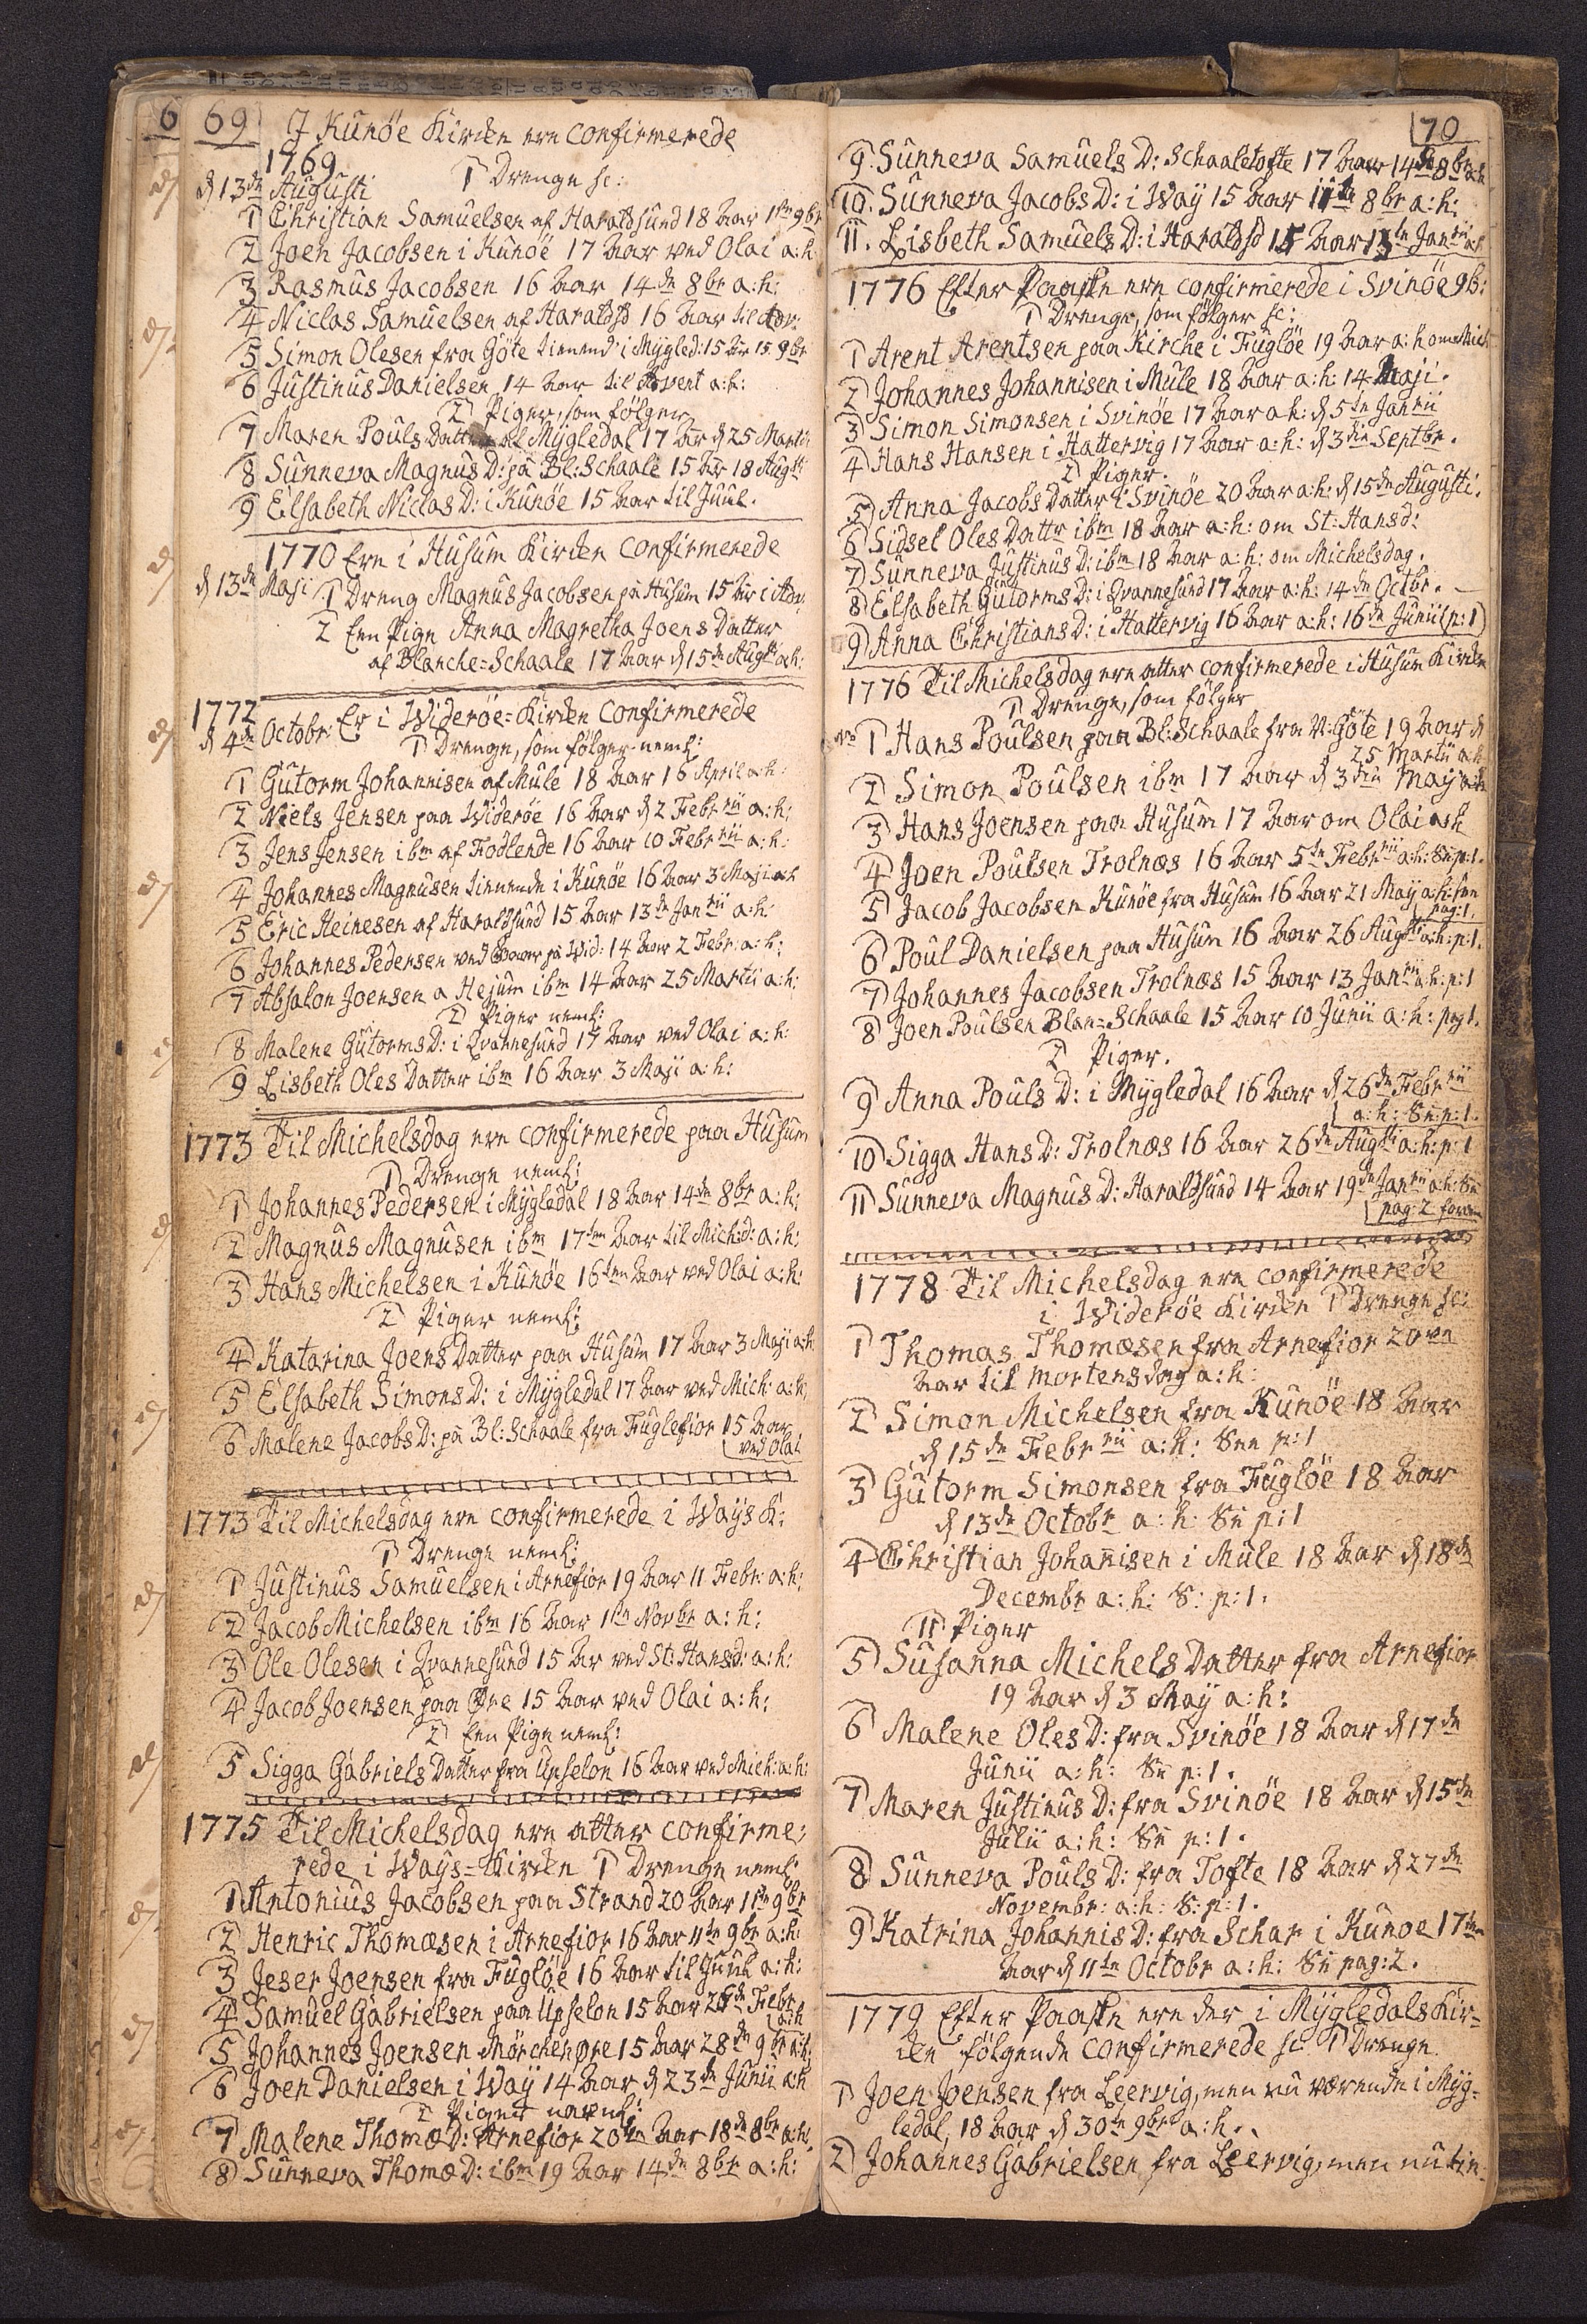 6 69
J Kunöe Kirken ere confirmerede
1769
d 13de Augusti 1) Drenge sc:
1 Christian Samuelsen af Haraldsund 18 Aar 1te 9br
2 Joen Jacobsen i Kunöe 17 Aar ved Olai a:h:
3 Rasmus Jacobsen 16 Aar 14de 8br a:h:
4 Niclas Samuelsen af Haraldsd 16 Aar til Adv:
5 Simon Olesen fra Göte tienend i Mygled: 15 Aar 15. 9br
6 Justinus Danielsen 14 Aar til Advent a:h:
2) Piger, som fölger
7 Maren Pouls Datter af Mygledal 17 Aar d 25 Martii
8 Sunneva Magnus D: på Bl: Schaale 15 Aar 18 Augsti
9 Elsabeth Niclas D: i Kunöe 15 Aar til Juul.
1770 Ere i Husum Kirken Confirmerede
d 13de Maji 1) Dreng Magnus Jacobsen på Husum 15 Aar i Adv:
2 Een Pige Anna Magretha Joens Datter
af Blanche=Schaale 17 Aar d 15de Augsti a:h:
1772
d 4de Octobr: Er i Widerøe=Kirken Confirmerede
1) Drenge, som fölger neml:
1 Gutorm Johannisen af Mule 18 Aar 16 April a:h:
2 Niels Jensen paa Widerøe 16 Aar d 2 Febrrii a:h:
3 Jens Jensen ibm af Fodlende 16 Aar 10 Febrrii a:h:
4 Johannes Magnusen tienende i Kunöe 16 Aar 3 Maji a:h
5 Eric Heinesen af Haraldsund 15 Aar 13de Janrii a:h:
6 Johannes Pedersen ved Aaar på Wid: 14 Aar 2 Febr: a:h:
7 Absalon Joensen a Hejum ibm 14 Aar 25 Martii a:h:
2) Piger neml:
8 Malene Gutorms D: i Qvannesund 17 Aar ved Olai a:h:
9 Lisbeth Oles Datter ibm 16 Aar 3 Maji a:h:
1773 Til Michelsdag ere confirmerede paa Husum
1) Drenge neml:
1 Johannes Pedersen i Mygledal 18 Aar 14de 8br a:h:
2 Magnus Magnusen ibm 17ten Aar til Mich:d: a:h:
3 Hans Michelsen i Kunöe 16ten Aar ved Olai a:h:
2) Piger neml:
4) Katarina Joens Datter paa Husum 17 Aar 3 Maji a:h:
5 Elsabeth Simons D: i Mygledal 17 Aar ved Mich: a:h:
6 Malene Jacobs D: på Bl: Schaale fra Fuglefior 15 Aar
ved Olai
1773 Til Michelsdag ere confirmerede i Ways K:
1) Drenge neml:
1) Justinus Samuelsen i Arnefior 19 Aar 11 Febr: a:h:
2) Jacob Michelsen ibm 16 Aar 1te Novbr a:h:
3) Ole Olesen i Qvannesund 15 Ar ved St: Hansd: a:h:
4) Jacob Joensen paa Øre 15 Aar ved Olai a:h:
2) Een Pige neml:
5 Sigga Gabriels Datter fra Upselon 16 Aar ved Mich: a:h:
1775 Til Michelsdag ere atter confirme:
rede i Ways=Kirken 1) Drenge neml:
1 Antonius Jacobsen paa Strand 20 Aar 11te 9br
2 Henric Thomæsen i Arnefior 16 Aar 11te 9br a:h:
3 Jeser Joensen fra Fuglöe 16 Aar til Juul a:h:
4 Samuel Gabrielsen paa Upselon 15 Aar 26de Febr
a:h
5 Johannes Joensen Mörchenøre 15 Aar 28de 9br a:h:
6 Joen Danielsen i Way 14 Aar d 23de Junii a:h
2 Piger navnl:
7 Malene Thomæ D: Arnefior 20ve Aar 18de 8br a:h:
8 Sunneva Thomæ D: ibm 19 Aar 14de 8br a:h:
70
9. Sunneva Samuels D: Schaaletofte 17 Aar 14de 8br a:h
10. Sunneva Jacobs D: i Way 15 Aar 11te 8br a:h:
11. Lisbeth Samuels D: i Haraldsd 15 Aar 13te Janrii a:h
1776 Efter Paaske ere confirmerede i Svinöe 9b:
1) Drenge, som fölger sc:
1 Arent Arentsen paa Kirche i Fuglöe 19 Aar a:h om Mich
2 Johannes Johannisen i Mule 18 Aar a:h: 14 Maji.
3 Simon Simonsen i Svinöe 17 Aar a:h: d 5te Janrii
4) Hans Hansen i Hattervig 17 Aar a:h: d 3die Septbr.
2) Piger.
5) Anna Jacobs Datter i Svinöe 20 Aar a:h: d 15de Augusti.
6 Sidsel Oles Dattr ibm 18 Aar a:h: om St: Hansd:
7) Sunneva Justinus D: ibm 18 Aar a:h: om Michelsdag.
8) Elsabeth Gutorms D: i Qvannesund 17 Aar a:h: 14de Octbr.
9) Anna Christians D: i Hattervig 16 Aar a:h: 16de Junii (p:1)
1776 Til Michelsdag ere atter confirmerede i Husum Kirken
1) Drenge, som fölger
1 Hans Poulsen paa Bl: Schaale fra N: Göte 19 Aar d
25 Martii a:h
2 Simon Poulsen ibm 17 Aar d 3die May a:h
3 Hans Joensen paa Husum 17 Aar om Olai a:h
4 Joen Poulsen Trolnæs 16 Aar 5te Febrrii a:h: See p:1.
5 Jacob Jacobsen Kunöe fra Husum 16 Aar 21 Maÿ a:h: see
pag:1.
6 Poul Danielsen paa Husum 16 Aar 26 Augsti a:h: p:1.
7) Johannes Jacobsen Trolnæs 15 Aar 13 Janrii a:h: p:1
8 Joen Poulsen Blan=Schaale 15 Aar 10 Junii a:h: pag 1.
2) Piger.
9 Anna Pouls D: i Mygledal 16 Aar d 26de Febrrii
a:h: See p:1.
10) Sigga Hans D: Trolnæs 16 Aar 26de Augsti a:h: p:1
11 Sunneva Magnus D: Haraldsund 14 Aar 19de Janrii a:h: See
pag: 2 foran
1778 Til Michelsdag ere confirmerede
i Widerøe Kirken 1) Drenge sc:
1) Thomas Thomæsen fra Arnefior 20ve
Aar til Mortensdag a:h:
2 Simon Michelsen fra Kunöe 18 Aar
d 15de Febrrii a:h: See p:1
3) Gutorm Simonsen fra Fuglöe 18 Aar
d 13de Octobr a:h: See p:1
4 Christian Johannisen i Mule 18 Aar d 18de
Decembr a:h: S: p:1.
II Piger
5) Susanna Michels Datter fra Arnefior
19 Aar d 3 May a:h:
6 Malene Oles D: fra Svinöe 18 Aar d 17de
Junii a:h: See p:1.
7 Maren Justinus D: fra Svinöe 18 Aar d 15de
Julii a:h: See p:1.
8) Sunneva Pouls D: fra Tofte 18 Aar d 27de
Novembr: a:h: S: p:1.
9) Katrina Johannis D: fra Schar i Kunoe 17ten
Aar d 11te Octobr a:h: See pag: 2.
1779 Efter Paaske ere der i Mygledals Kir=
ken fölgende confirmerede sc: 1) Drenge
1 Joen Joensen fra Leervig, men nu værende i Myg=
ledal, 18 Aar d 30te 9br a:h.
2) Johannes Gabrielsen fra Leervig, men nu tien